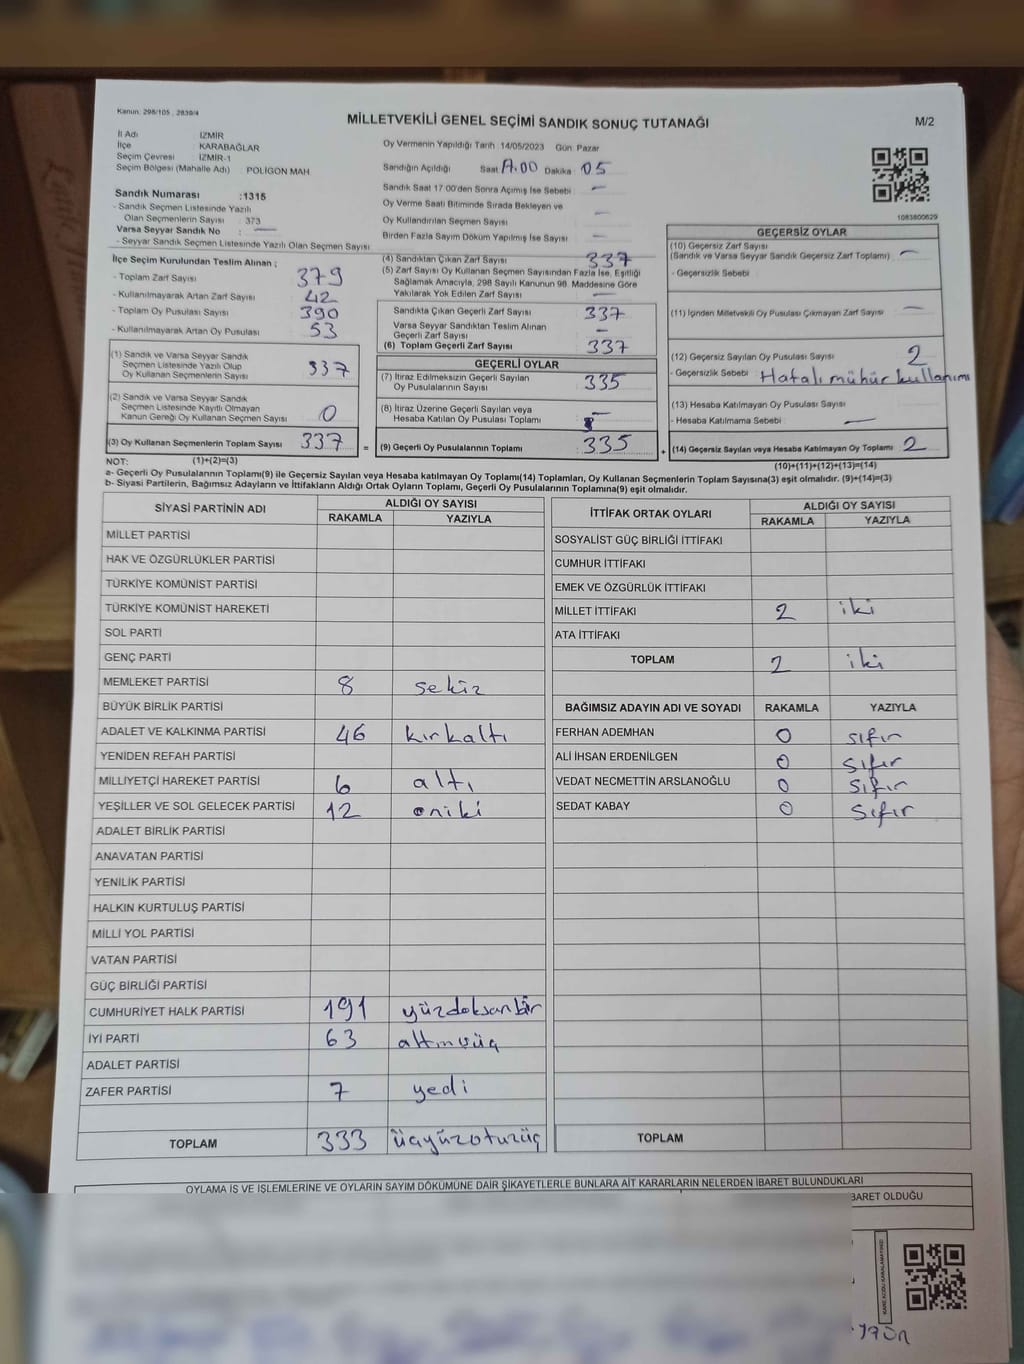 Kanun: 298/105 , 2839/4
MİLLETVEKİLİ GENEL SEÇİMİ SANDIK SONUÇ TUTANAĞI
M/2
İl Adı İZMİR
İlçe KARABAĞLAR
Seçim Çevresi İZMİR-1
Seçim Bölgesi (Mahalle Adı) POLİGON MAH
Sandık Numarası :1315
- Sandık Seçmen Listesinde Yazılı
Olan Seçmenlerin Sayısı : 373
Varsa Seyyar Sandık No : —
- Seyyar Sandık Seçmen Listesinde Yazılı Olan Seçmen Sayısı
Oy Vermenin Yapıldığı Tarih 14/05/2023 Gün Pazar
Sandığın Açıldığı Saat 17.00 Dakika 05
Sandık Saat 17:00'den Sonra Açılmış İse Sebebi —
Oy Verme Saati Bitiminde Sırada Bekleyen ve
Oy Kullandırılan Seçmen Sayısı —
Birden Fazla Sayım Döküm Yapılmış İse Sayısı —
1083800629
İlçe Seçim Kurulundan Teslim Alınan ;
- Toplam Zarf Sayısı 379
- Kullanılmayarak Artan Zarf Sayısı 42
- Toplam Oy Pusulası Sayısı 390
- Kullanılmayarak Artan Oy Pusulası 53
(1) Sandık ve Varsa Seyyar Sandık
Seçmen Listesinde Yazılı Olup
Oy Kullanan Seçmenlerin Sayısı 337
(2) Sandık ve Varsa Seyyar Sandık
Seçmen Listesinde Kayıtlı Olmayan
Kanun Gereği Oy Kullanan Seçmen Sayısı 0
(3) Oy Kullanan Seçmenlerin Toplam Sayısı 337 =
(4) Sandıktan Çıkan Zarf Sayısı 337
(5) Zarf Sayısı Oy Kullanan Seçmen Sayısından Fazla İse, Eşitliği
Sağlamak Amacıyla, 298 Sayılı Kanunun 98. Maddesine Göre
Yakılarak Yok Edilen Zarf Sayısı —
Sandıkta Çıkan Geçerli Zarf Sayısı 337
Varsa Seyyar Sandıktan Teslim Alınan
Geçerli Zarf Sayısı —
(6) Toplam Geçerli Zarf Sayısı 337
GEÇERLİ OYLAR
(7) İtiraz Edilmeksizin Geçerli Sayılan
Oy Pusulalarının Sayısı 335
(8) İtiraz Üzerine Geçerli Sayılan veya
Hesaba Katılan Oy Pusulası Toplamı —
(9) Geçerli Oy Pusulalarının Toplamı 335 +
GEÇERSİZ OYLAR
(10) Geçersiz Zarf Sayısı
(Sandık ve Varsa Seyyar Sandık Geçersiz Zarf Toplamı) —
- Geçersizlik Sebebi
(11) İçinden Milletvekili Oy Pusulası Çıkmayan Zarf Sayısı —
(12) Geçersiz Sayılan Oy Pusulası Sayısı 2
- Geçersizlik Sebebi Hatalı mühür kullanımı
(13) Hesaba Katılmayan Oy Pusulası Sayısı
- Hesaba Katılmama Sebebi —
(14) Geçersiz Sayılan veya Hesaba Katılmayan Oy Toplamı 2
NOT: (1)+(2)=(3)
(10)+(11)+(12)+(13)=(14)
a- Geçerli Oy Pusulalarının Toplamı(9) ile Geçersiz Sayılan veya Hesaba katılmayan Oy Toplamı(14) Toplamları, Oy Kullanan Seçmenlerin Toplam Sayısına(3) eşit olmalıdır. (9)+(14)=(3)
b- Siyasi Partilerin, Bağımsız Adayların ve İttifakların Aldığı Ortak Oyların Toplamı, Geçerli Oy Pusulalarının Toplamına(9) eşit olmalıdır.
SİYASİ PARTİNİN ADI ALDIĞI OY SAYISI
RAKAMLA YAZIYLA
MİLLET PARTİSİ
HAK VE ÖZGÜRLÜKLER PARTİSİ
TÜRKİYE KOMÜNİST PARTİSİ
TÜRKİYE KOMÜNİST HAREKETİ
SOL PARTİ
GENÇ PARTİ
MEMLEKET PARTİSİ 8 sekiz
BÜYÜK BİRLİK PARTİSİ
ADALET VE KALKINMA PARTİSİ 46 kırkaltı
YENİDEN REFAH PARTİSİ
MİLLİYETÇİ HAREKET PARTİSİ 6 altı
YEŞİLLER VE SOL GELECEK PARTİSİ 12 oniki
ADALET BİRLİK PARTİSİ
ANAVATAN PARTİSİ
YENİLİK PARTİSİ
HALKIN KURTULUŞ PARTİSİ
MİLLİ YOL PARTİSİ
VATAN PARTİSİ
GÜÇ BİRLİĞİ PARTİSİ
CUMHURİYET HALK PARTİSİ 191 yüzdoksanbir
İYİ PARTİ 63 altmışüç
ADALET PARTİSİ
ZAFER PARTİSİ 7 yedi
TOPLAM 333 üçyüzotuzüç
İTTİFAK ORTAK OYLARI ALDIĞI OY SAYISI
RAKAMLA YAZIYLA
SOSYALİST GÜÇ BİRLİĞİ İTTİFAKI
CUMHUR İTTİFAKI
EMEK VE ÖZGÜRLÜK İTTİFAKI
MİLLET İTTİFAKI 2 iki
ATA İTTİFAKI
TOPLAM 2 iki
BAĞIMSIZ ADAYIN ADI VE SOYADI RAKAMLA YAZIYLA
FERHAN ADEMHAN 0 sıfır
ALİ İHSAN ERDENİLGEN 0 sıfır
VEDAT NECMETTİN ARSLANOĞLU 0 sıfır
SEDAT KABAY 0 sıfır
TOPLAM
OYLAMA İŞ VE İŞLEMLERİNE VE OYLARIN SAYIM DÖKÜMÜNE DAİR ŞİKAYETLERLE BUNLARA AİT KARARLARIN NELERDEN İBARET BULUNDUKLARI
BARET OLDUĞU
KARE KODU KARALAMAYINIZ!